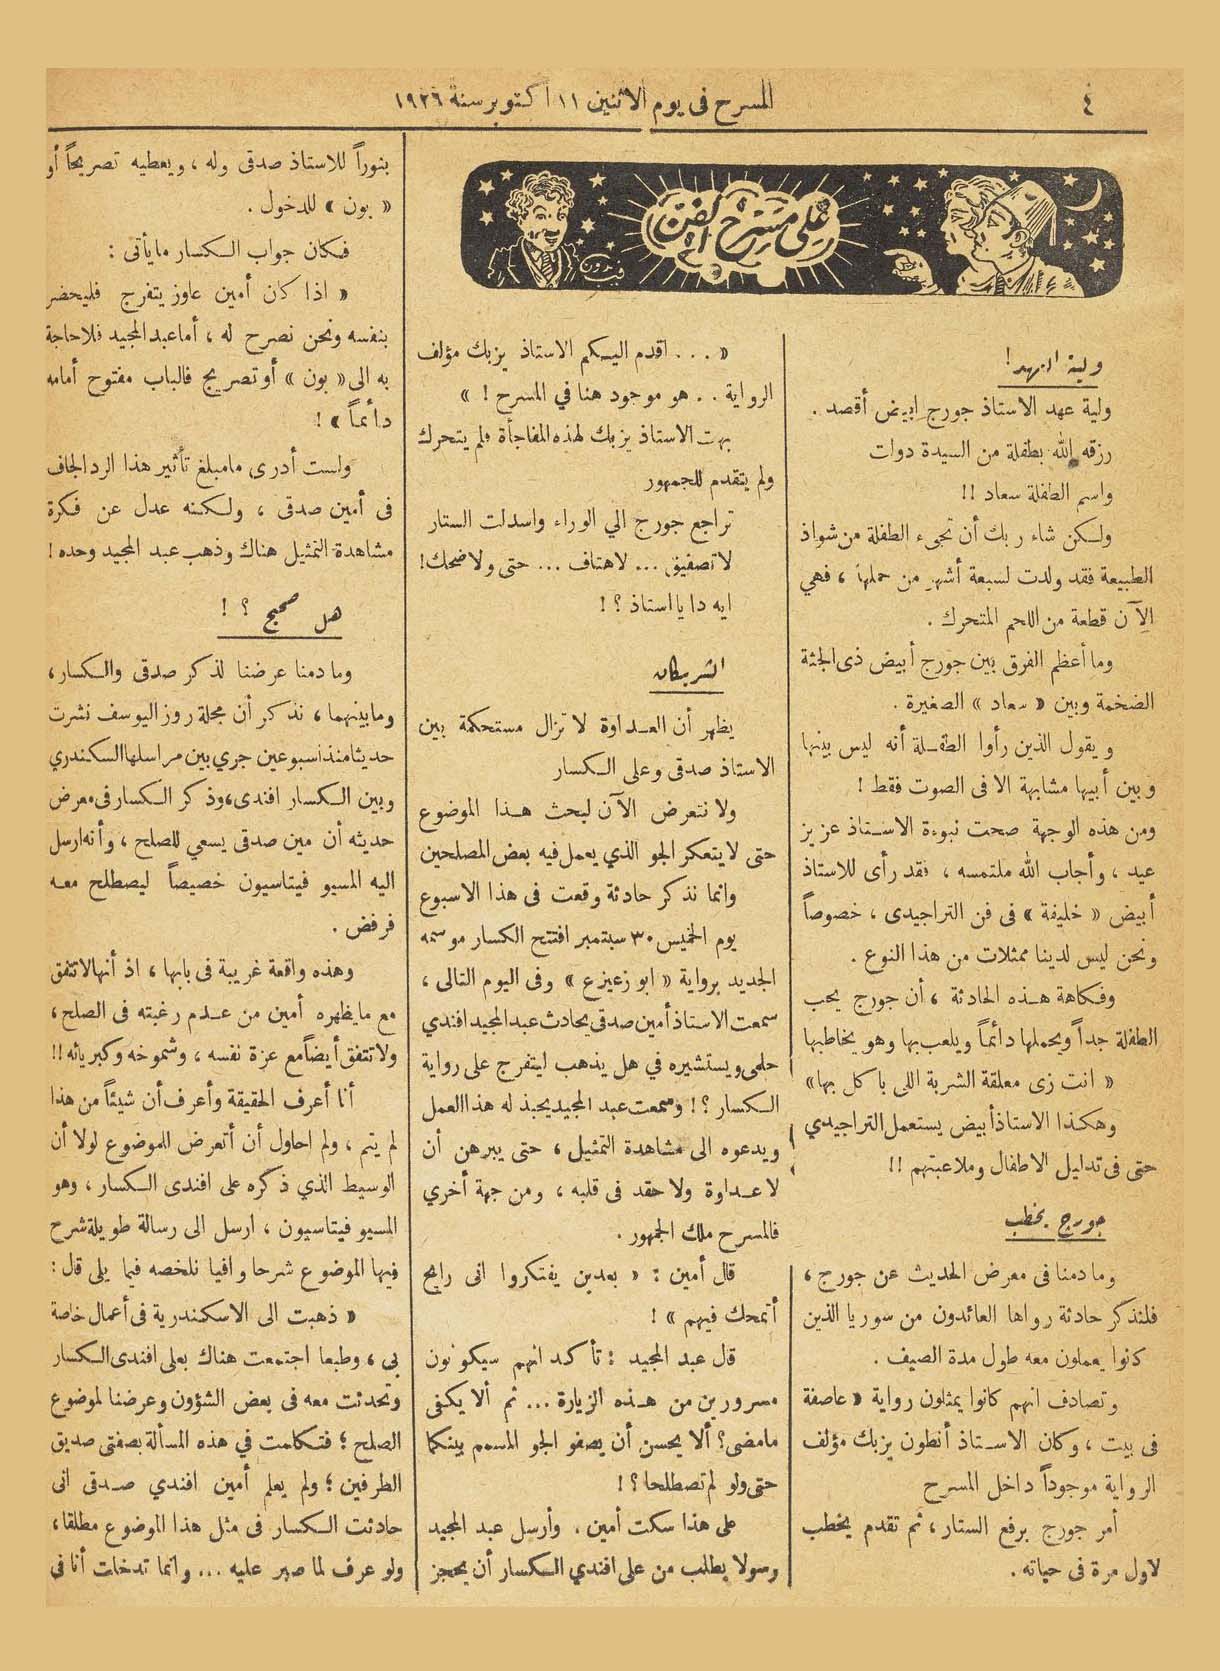 ٤
المسرح فى يوم الاثنين ١١ اكتوبر سنة ١٩٢٦
على مسرح الفن
فيدون
ولية العهد !
ولية عهد الاستاذ جورج ابيض أقصد .
رزقه الله بطفلة من السيدة دولت
واسم الطفلة سعاد !!
ولكن شاء ربك أن تجىء الطفلة من شواذ
الطبيعة فقد ولدت لسبعة أشهر من حملها ، فهي
الآن قطعة من اللحم المتحرك .
وما أعظم الفرق بين جورج أبيض ذى الجثة
الضخمة وبين « سعاد » الصغيرة .
ويقول الذين رأوا الطفلة أنه ليس بينها
وبين أبيها مشابهة الا فى الصوت فقط !
ومن هذه الوجهة صحت نبوءة الاستاذ عزيز
عيد ، وأجاب الله ملتمسه ، فقد رأى للاستاذ
أبيض « خليفة » فى فن التراجيدى ، خصوصاً
ونحن ليس لدينا ممثلات من هذا النوع .
وفكاهة هذه الحادثة ، أن جورج يحب
الطفلة جداً ويحملها دائماً ويلعب بها وهو يخاطبها
« انت زى معلقة الشربة اللى باكل بها »
وهكذا الاستاذ أبيض يستعمل التراجيدي
حتى فى تدليل الاطفال وملاعبتهم !!
جورج يخطب
وما دمنا فى معرض الحديث عن جورج ،
فلنذكر حادثة رواها العائدون من سوريا الذين
كانوا يعملون معه طول مدة الصيف .
وتصادف انهم كانوا يمثلون رواية « عاصفة
فى بيت ، وكان الاستاذ أنطون يزبك مؤلف
الرواية موجوداً داخل المسرح
أمر جورج برفع الستار ، ثم تقدم يخطب
لاول مرة فى حياته .
« ... اقدم اليكم الاستاذ يزبك مؤلف
الرواية .. هو موجود هنا في المسرح ! »
بهت الاستاذ يزبك لهذه المفاجأة فلم يتحرك
ولم يتقدم للجمهور
تراجع جورج الي الوراء واسدلت الستار
لا تصفيق ... لا هتاف ... حتى ولا ضحك !
ايه دا يا استاذ ؟ !
الشريكان
يظهر أن العداوة لا تزال مستحكمة بين
الاستاذ صدقى وعلى الكسار
ولا نتعرض الآن لبحث هذا الموضوع
حتى لا يتعكر الجو الذي يعمل فيه بعض المصلحين
وانما نذكر حادثة وقعت فى هذا الاسبوع
يوم الخميس ٣٠ سبتمبر افتتح الكسار موسمه
الجديد برواية « ابو زعيزع » وفى اليوم التالى ،
سمعت الاستاذ أمين صدقى يحادث عبد المجيد افندي
حلمى ويستشيره في هل يذهب ليتفرج على رواية
الكسار ؟ ! وسمعت عبد المجيد يحبذ له هذا العمل
ويدعوه الى مشاهدة التمثيل ، حتى يبرهن أن
لا عداوة ولا حقد فى قلبه ، ومن جهة أخري
فالمسرح ملك الجمهور .
قال أمين : « بعدين يفتكروا انى رايح
أتمحك فيهم » !
قل عبد المجيد : تأكد انهم سيكونون
مسرورين من هذه الزيارة ... ثم ألا يكفى
مامضى ؟ ألا يحسن أن يصفو الجو المسمم بينكما
حتى ولو لم تصطلحا ؟ !
على هذا سكت أمين . وأرسل عبد المجيد
رسولا يطلب من على افندي الكسار أن يحجز
بنوراً للاستاذ صدقى وله ، ويعطيه تصريحاً أو
« بون » للدخول .
فكان جواب الكسار ما يأتى :
« اذا كان أمين عاوز يتفرج فليحضر
بنفسه ونحن نصرح له ، أما عبد المجيد فلا حاجة
به الى « بون » أو تصريح فالباب مفتوح أمامه
دائماً » !
ولست أدرى ما مبلغ تأثير هذا الرد الجاف
فى أمين صدقى ، ولكنه عدل عن فكرة
مشاهدة التمثيل هناك وذهب عبد المجيد وحده !
هل صحيح ؟ !
وما دمنا عرضنا لذكر صدقى والكسار ،
وما بينهما ، نذكر أن مجلة روز اليوسف نشرت
حديثا منذ اسبوعين جري بين مراسلها السكندري
وبين الكسار افندى ، وذكر الكسار فى معرض
حديثه أن مين صدقى يسعي للصلح ، وأنه ارسل
اليه المسيو فيتاسيون خصيصاً ليصطلح معه
فرفض .
وهذه واقعة غريبة فى بابها ، اذ أنها لا تتفق
مع ما يظهره أمين من عدم رغبته فى الصلح ،
ولا تتفق أيضاً مع عزة نفسه ، وشموخه وكبريائه !!
أنا أعرف الحقيقة وأعرف أن شيئاً من هذا
لم يتم ، ولم احاول أن أتعرض للموضوع لولا أن
الوسيط الذي ذكره على افندى الكسار ، وهو
المسيو فيتاسيون ، ارسل الى رسالة طويلة شرح
فيها الموضوع شرحا وافيا نلخصه فيما يلى قال :
« ذهبت الى الاسكندرية فى أعمال خاصة
بي ، وطبعا اجتمعت هناك بعلى افندى الكسار
وتحدثت معه فى بعض الشؤون وعرضنا لموضوع
الصلح ؛ فتكلمت في هذه المسألة بصفتى صديق
الطرفين ؛ ولم يعلم أمين افندي صدقى انى
حادثت الكسار فى مثل هذا الموضوع مطلقا ،
ولو عرف لما صبر عليه ... وانما تدخلت أنا فى